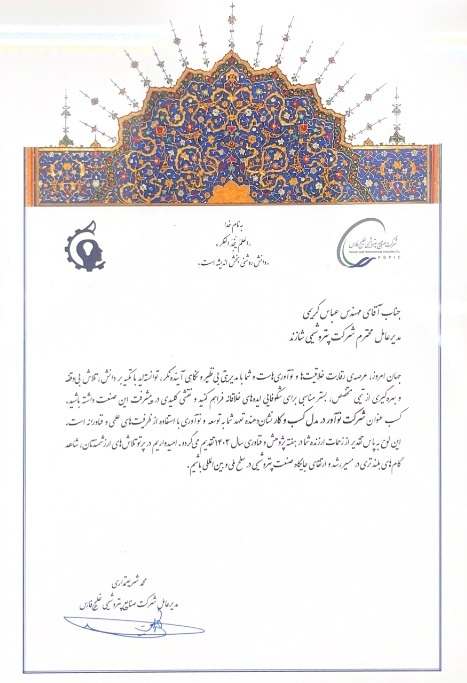 به نام خدا
«العلم ینجد الفکر»
«دانش روشنی بخش اندیشه است.»
شرکت صنایع پتروشیمی خلیج فارس
PGPIC
جناب آقای مهندس عباس کریمی
مدیرعامل محترم شرکت پتروشیمی شازند
جهان امروز، عرصه‌ی رقابت خلاقیت‌ها و نوآوری‌هاست و شما با مدیریتی بی‌نظیر و نگاهی آینده‌نگر، توانسته‌اید با تکیه بر دانش، تلاش بی‌وقفه
و بهره‌گیری از تیمی متخصص، بستر مناسبی برای شکوفائی ایده‌های خلاقانه فراهم کنید و نقشی کلیدی در پیشرفت این صنعت داشته باشید.
کسب عنوان شرکت نوآور در مدل کسب و کار نشان‌دهنده تعهد شما به توسعه و نوآوری با استفاده از ظرفیت‌های علمی و فناورانه است.
این لوح به پاس تقدیر از زحمات ارزنده شما در هفته پژوهش و فناوری سال ۱۴۰۳ تقدیم می‌گردد. امیدواریم در پرتو تلاش‌های ارزشمندتان، شاهد
گام‌های بلندتری در مسیر رشد و ارتقای جایگاه صنعت پتروشیمی در سطح ملی و بین‌المللی باشیم.
محمد شریعتمداری
مدیرعامل شرکت صنایع پتروشیمی خلیج فارس